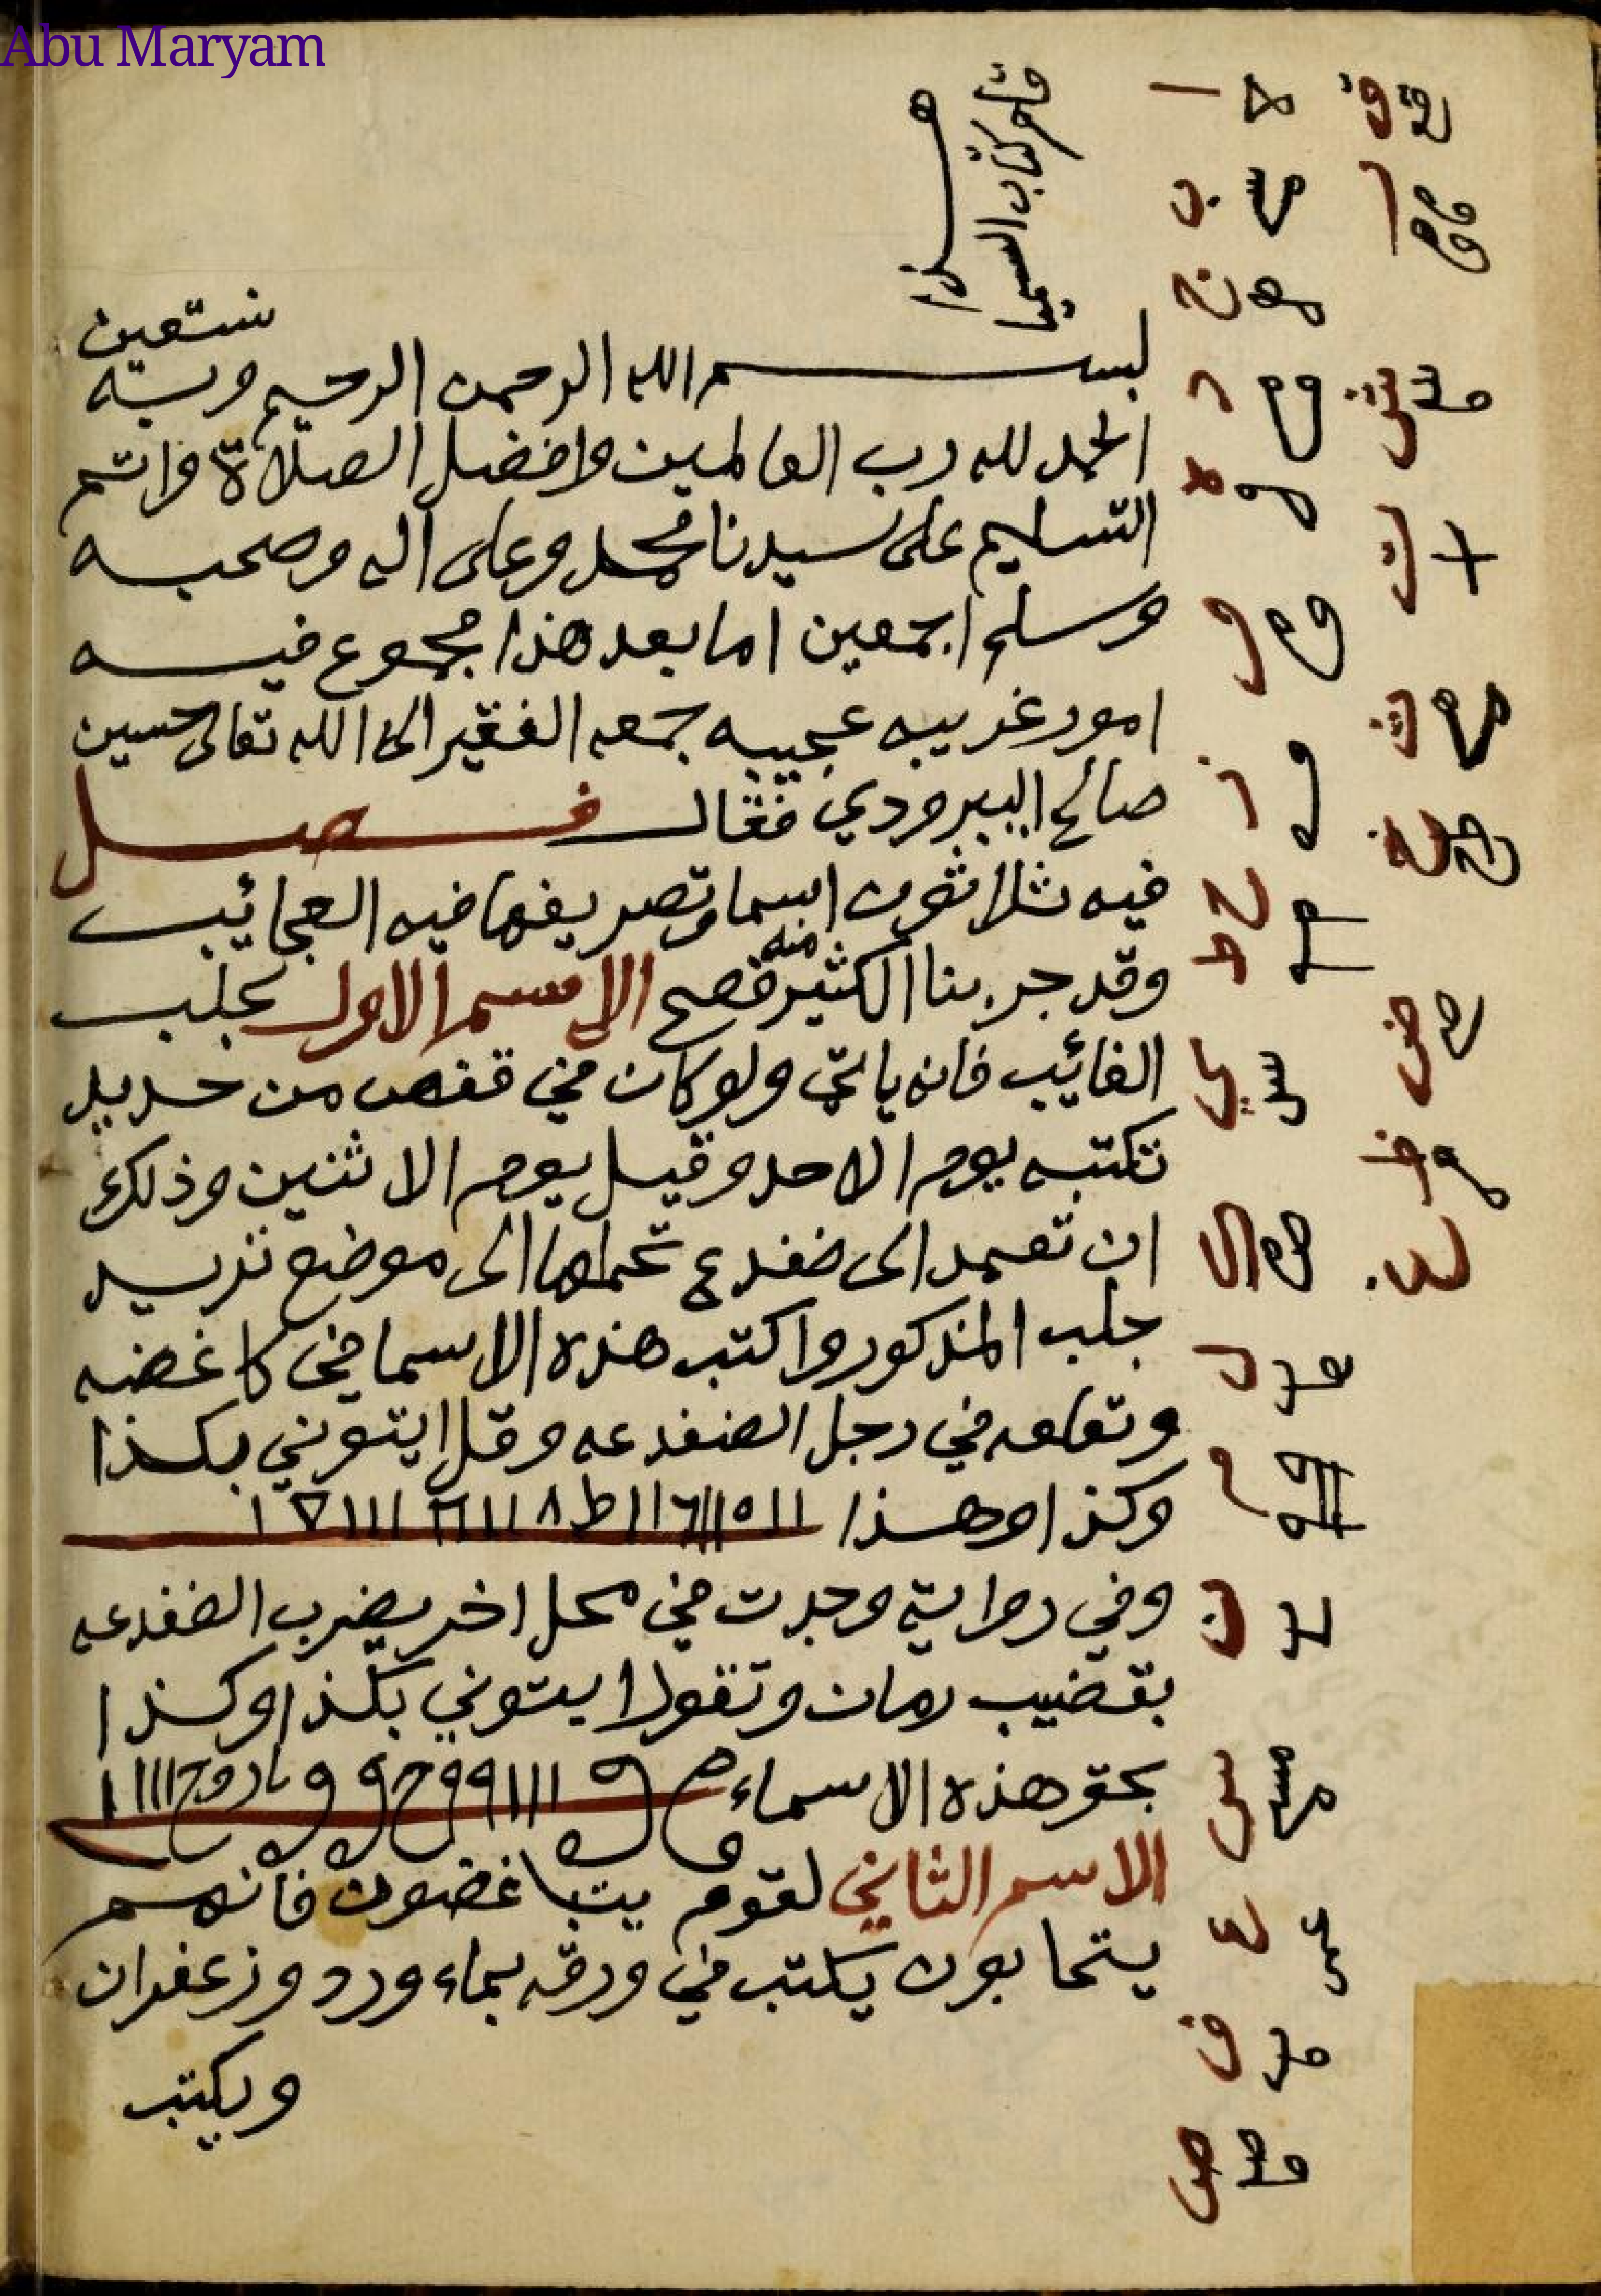 Abu Maryam
هذا
قلم كتاب السيميا
بسم الله الرحمن الرحيم وبه
نستعين
الحمد لله رب العالمين وافضل الصلاة واتم
التسليم على سيدنا محمد وعلى آله وصحبه
وسلم اجمعين اما بعد هذا مجموع فيه
امور غريبه عجيبه جمعه الفقير الى الله تعالى حسين
صالح فقال فصل
فيه ثلاثون اسما وتصريفها فيه العجائيب
وقد جربنا الكثير منه فصح الاسم الاول بجلب
الغائيب فانه ياتي ولو كان في قفص من حديد
تكتبه يوم الاحد وقيل يوم الاثنين وذلك
ان تعمد الى ضفدع تحملها الى موضع تريد
جلب المذكور واكتب هذه الاسما في كاغضه
وتعلقه في رجل الضفدعه وقل ايتوني بكذا
وكذا وهذا
وفي رواية وجدت في محل اخر يضرب الضفدعه
بقضيب رمان وتقول ايتوني بكذا وكذا
بحق هذه الاسماء
الاسم الثاني لقوم يتباغضون فانهم
يتحابون يكتب في ورقه بماء ورد وزعفران
ويكتب
ا
ب
ج
د
ه
و
ز
ح
ط
ي
ك
ل
م
ن
س
ع
ف
ص
ق
ر
ش
ت
ث
خ
ذ
ض
ظ
غ